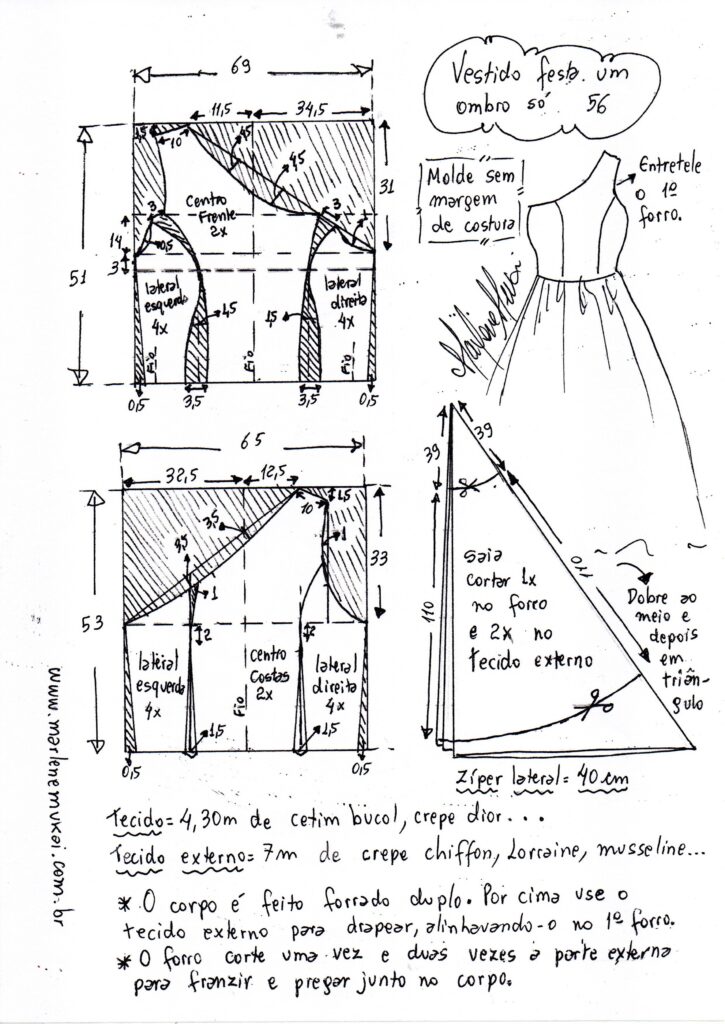 Vestido festa um
ombro só. 56
Molde sem
margem
de costura
Entretele
o 1º
forro.
69
11,5
34,5
1,5
10
4,5
4,5
31
51
3
3
1
Centro
Frente
2x
14
0,5
3
lateral
esquerda
4x
1,5
Fio
Fio
1,5
lateral
direita
4x
Fio
0,5
3,5
3,5
0,5
65
32,5
12,5
1,5
10
3,5
3,5
1
33
53
1
2
2
lateral
esquerda
4x
Centro
Costas
2x
Fio
lateral
direita
4x
0,5
1,5
1,5
0,5
39
39
110
110
saia
cortar 1x
no forro
e 2x no
tecido externo
Dobre ao
meio e
depois
em
triân-
gulo
Zíper lateral = 40 cm
www.marlenemukai.com.br
Tecido = 4,30m de cetim bucol, crepe dior...
Tecido externo = 7m de crepe chiffon, Lorraine, musseline...
* O corpo é feito forrado duplo. Por cima use o
tecido externo para drapear, alinhavando-o no 1º forro.
* O forro corte uma vez e duas vezes a parte externa
para franzir e pregar junto no corpo.